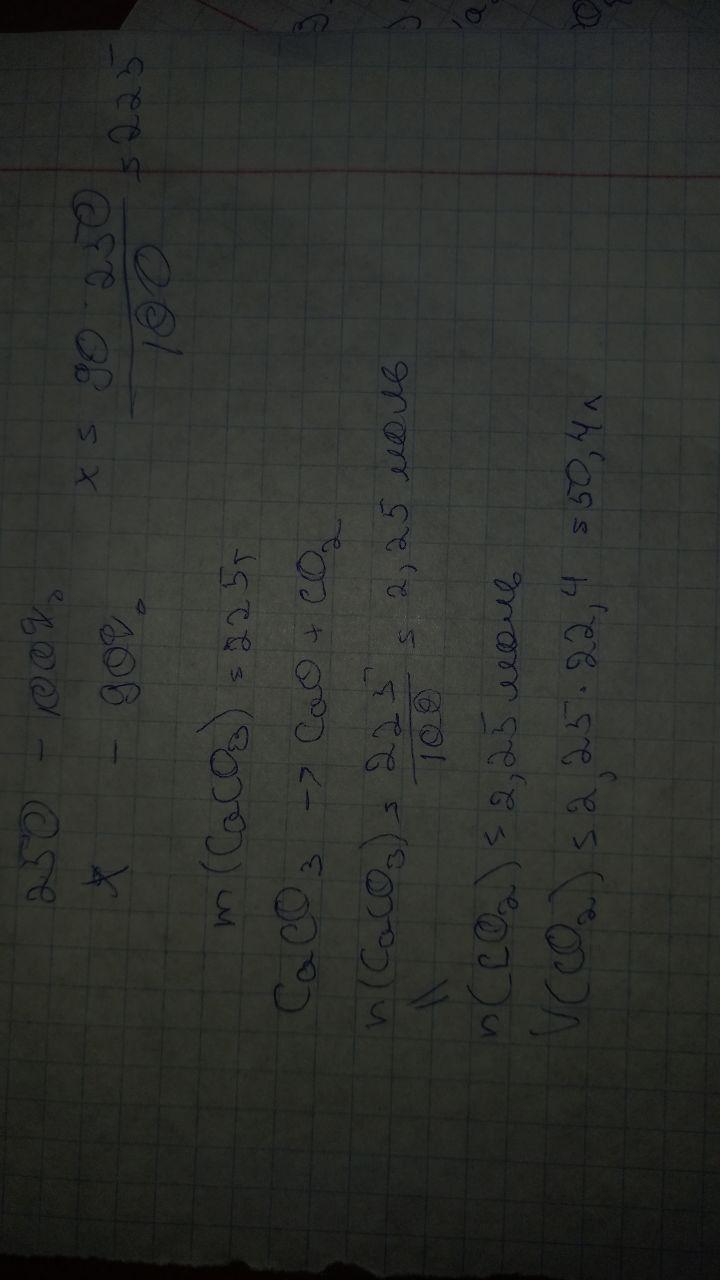 250 - 100%
x - 90%
x = 90 · 250 / 100 = 225
m(CaCO₃) = 225г
CaCO₃ -> CaO + CO₂
n(CaCO₃) = 225 / 100 = 2,25 моль
||
n(CO₂) = 2,25 моль
V(CO₂) = 2,25 · 22,4 = 50,4л